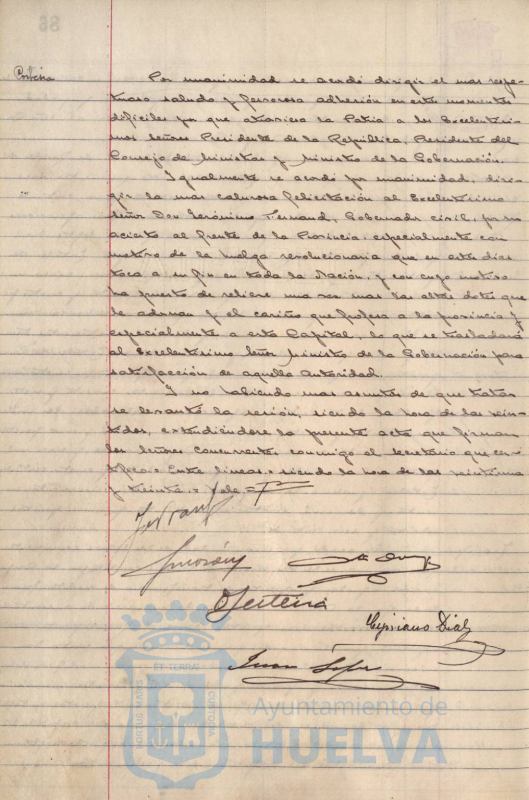 Cortesía
Por unanimidad se acordó dirigir el mas respe-
tuoso saludo y fervorosa adhesión en estos momentos
difíciles por que atraviesa la Patria a los Excelentísi-
mos Señores Presidente de la República, Presidente del
Consejo de Ministros y Ministro de la Gobernación.
Igualmente se acordó por unanimidad, diri-
gir la mas calurosa felicitación al Excelentísimo
Señor Don Gerónimo Fernaud, Gobernador civil, por su
acierto al frente de la Provincia, especialmente con
motivo de la huelga revolucionaria que en estos días
toca a su fin en toda la Nación, y con cuyo motivo
ha puesto de relieve una vez mas las altas dotes que
le adornan y el cariño que profesa a la provincia y
especialmente a esta Capital, lo que se trasladará
al Excelentísimo Señor Ministro de la Gobernación para
satisfacción de aquella Autoridad.
Y no habiendo mas asuntos de que tratar
se levantó la sesión, siendo la hora de las vein-
tidos, extendiéndose la presente acta que firman
los Señores Concurrentes conmigo el Secretario que cer-
tifico = Entre lineas = siendo la hora de las veintiuna
y treinta = Vale =
Cipriano Díaz
Juan López
ET TERRAE
PORTUS MARIS
CUSTODIA
Ayuntamiento de
HUELVA